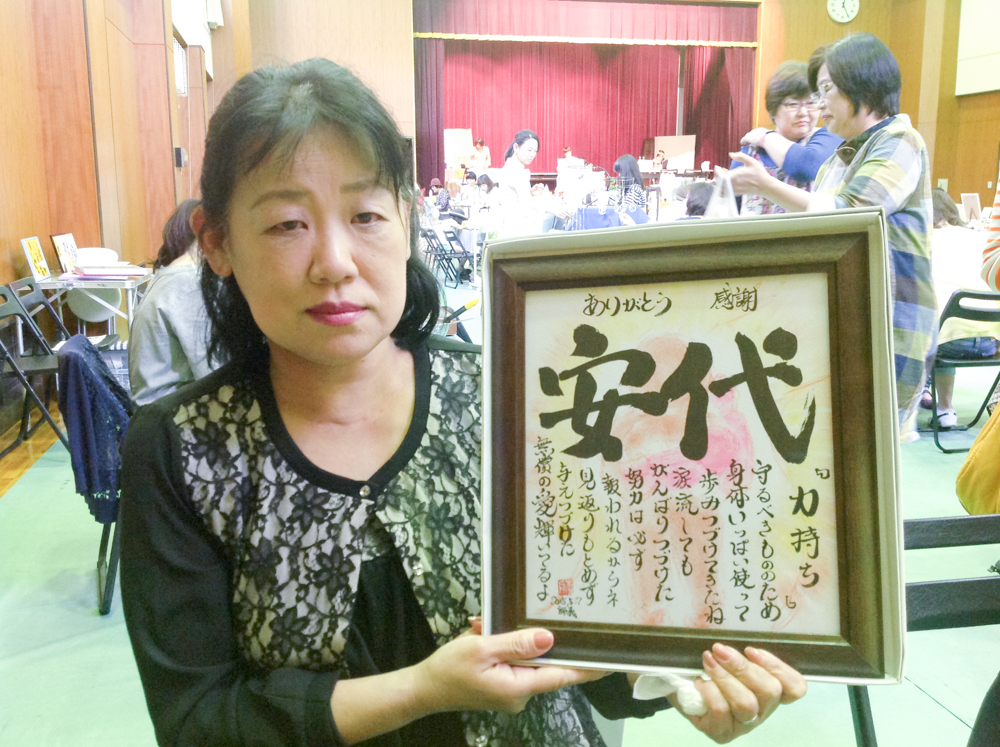 ありがとう 感謝
安代
『力持ち』
守るべきもののため
身体いっぱい使って
歩みつづけてきたね
涙流しても
がんばりつづけた
努力は必ず
報われるからネ
見返りもとめず
与えつづけた
無償の愛輝いてるよ